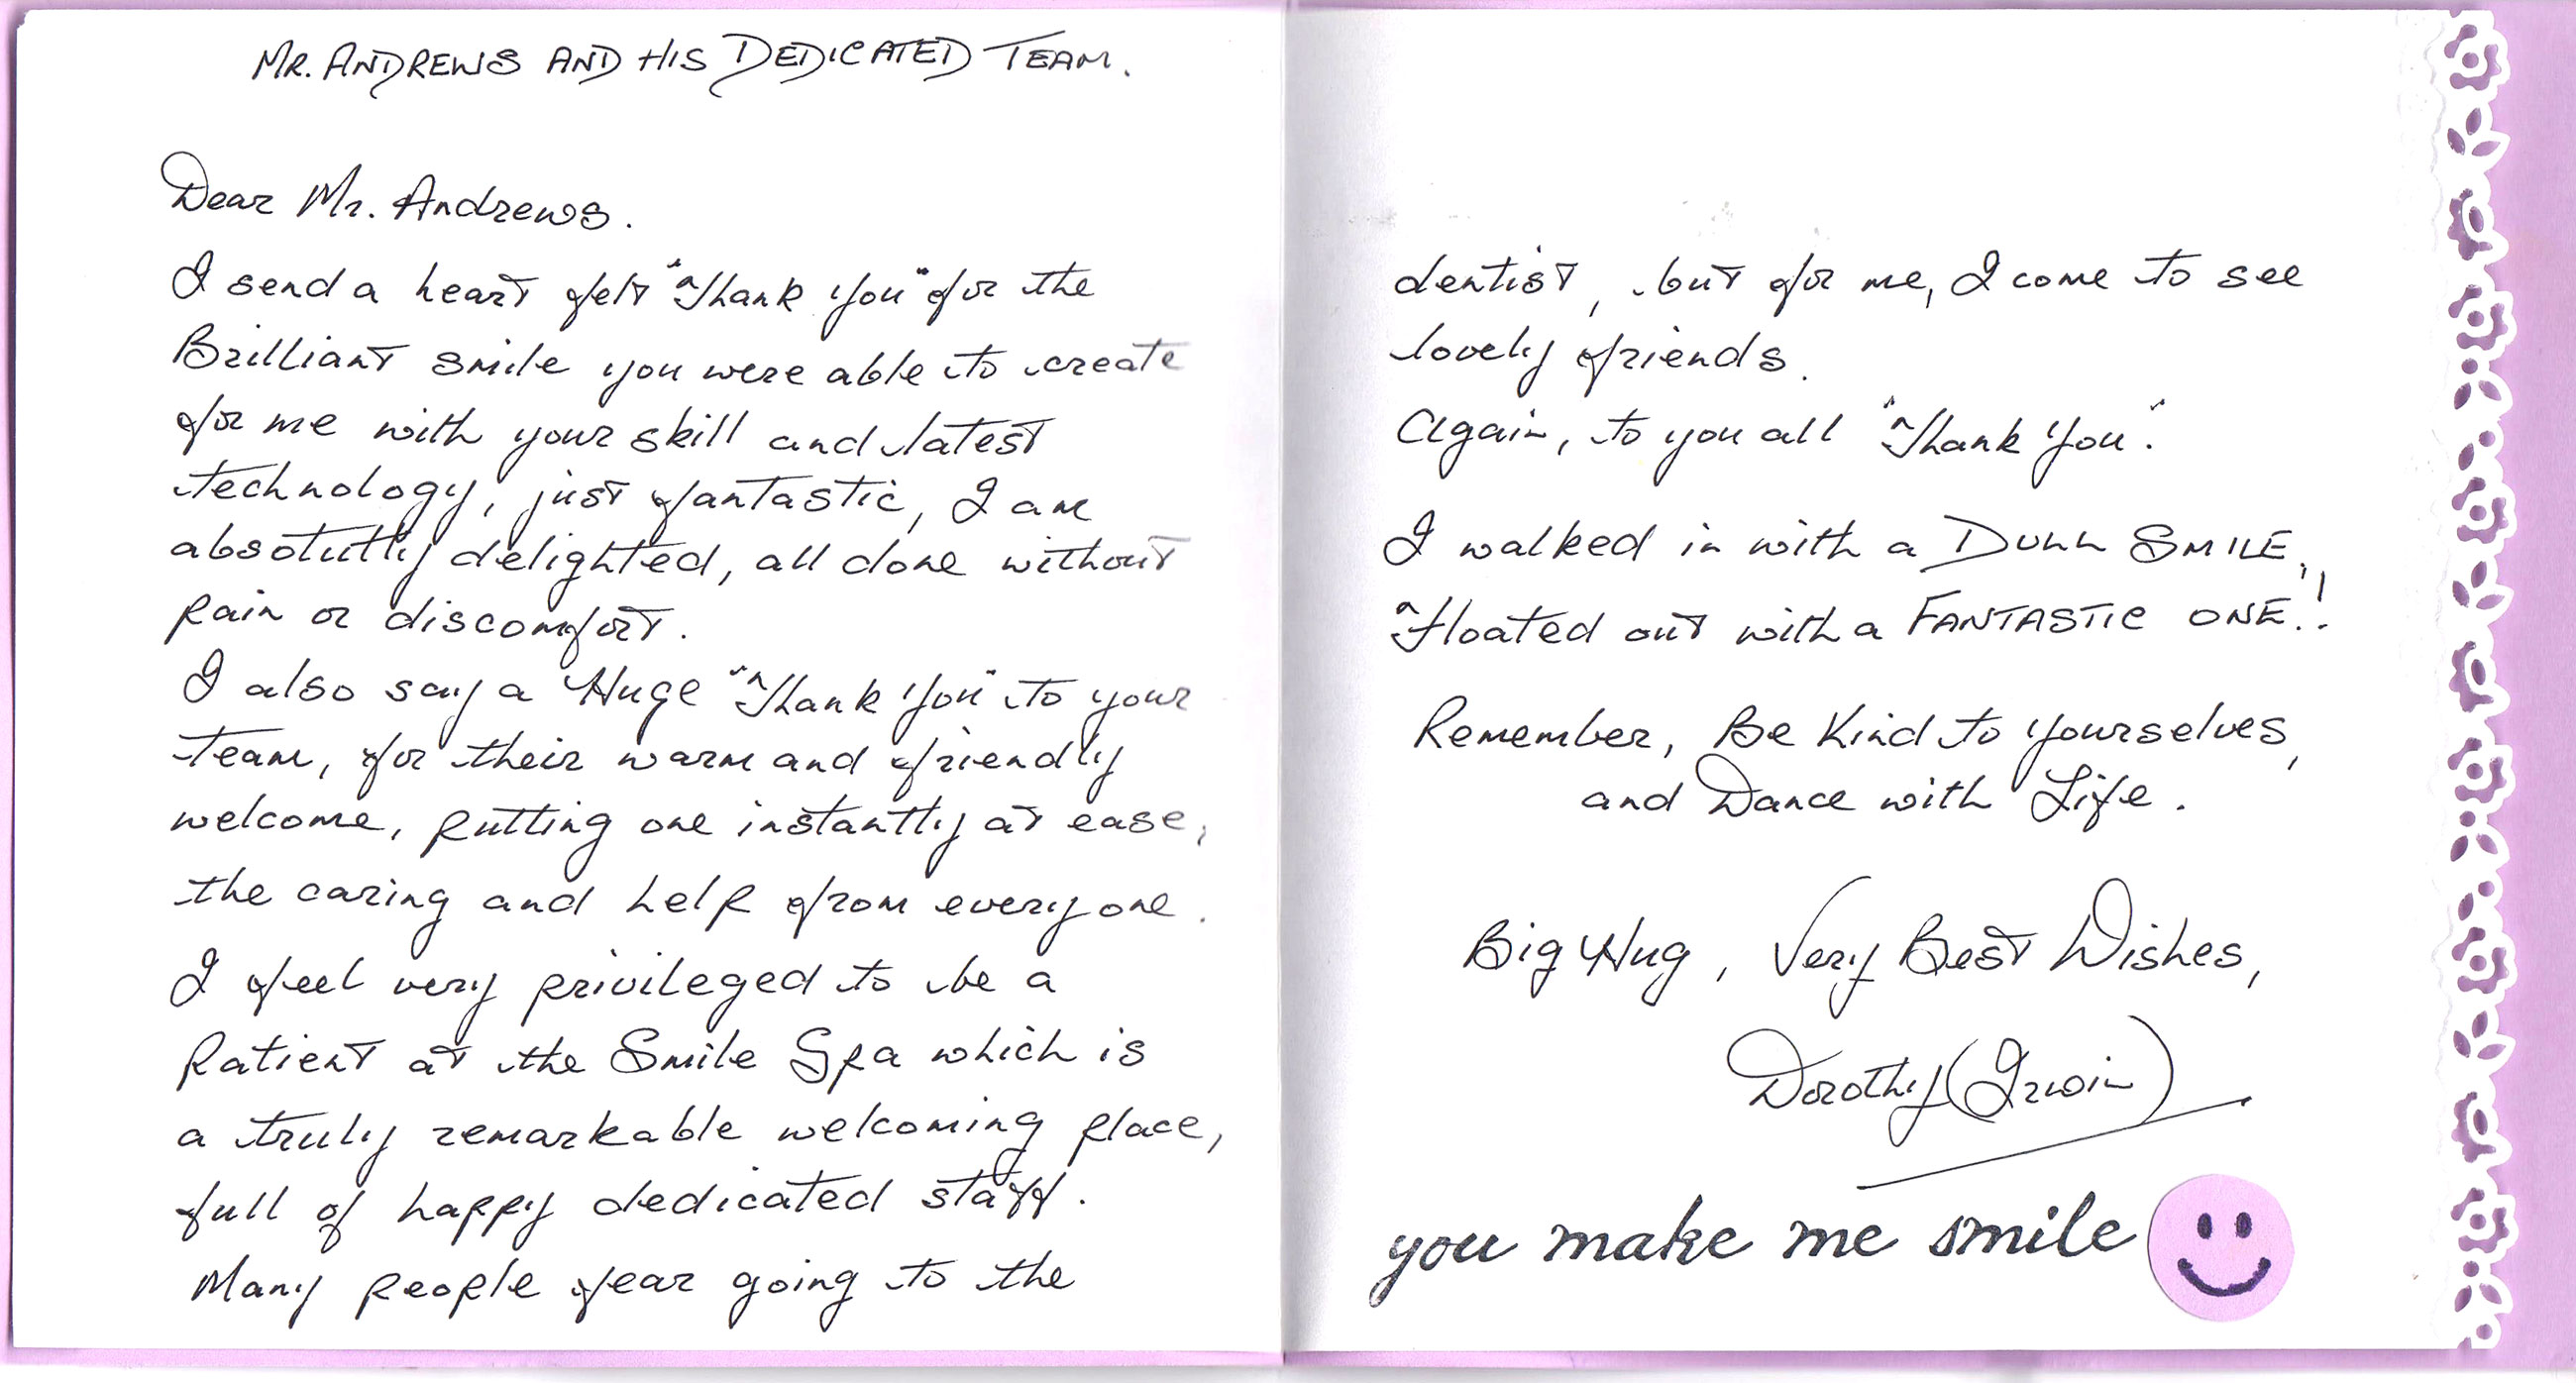 MR. ANDREWS AND HIS DEDICATED TEAM.
Dear Mr. Andrews.
I send a heart felt "Thank You" for the
Brilliant smile you were able to create
for me with your skill and latest
technology, just fantastic, I am
absolutly delighted, all done without
pain or discomfort.
I also say a Huge "Thank You" to your
team, for their warm and friendly
welcome, putting one instantly at ease,
the caring and help from everyone.
I feel very privileged to be a
Patient at the Smile Spa which is
a truly remarkable welcoming place,
full of happy dedicated staff.
Many people fear going to the
dentist, but for me, I come to see
lovely friends.
Again, to you all "Thank You".
I walked in with a DULL SMILE,
Floated out with a FANTASTIC ONE!!
Remember, Be Kind to yourselves,
and Dance with Life.
Big Hug, Very Best Wishes,
Dorothy (Irwin)
you make me smile